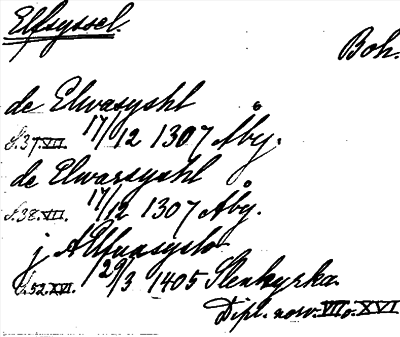 Elfsyssel.
Boh.
de Elwasyshl
S.37.VII. 17/12 1307 Åby.
de Elwarsyshl
S.38.VII. 17/12 1307 Åby.
j Ælfuasyslo
S.52.XVI. 29/3 1405 Slenkyrka.
Dipl. norv. VII o. XVI